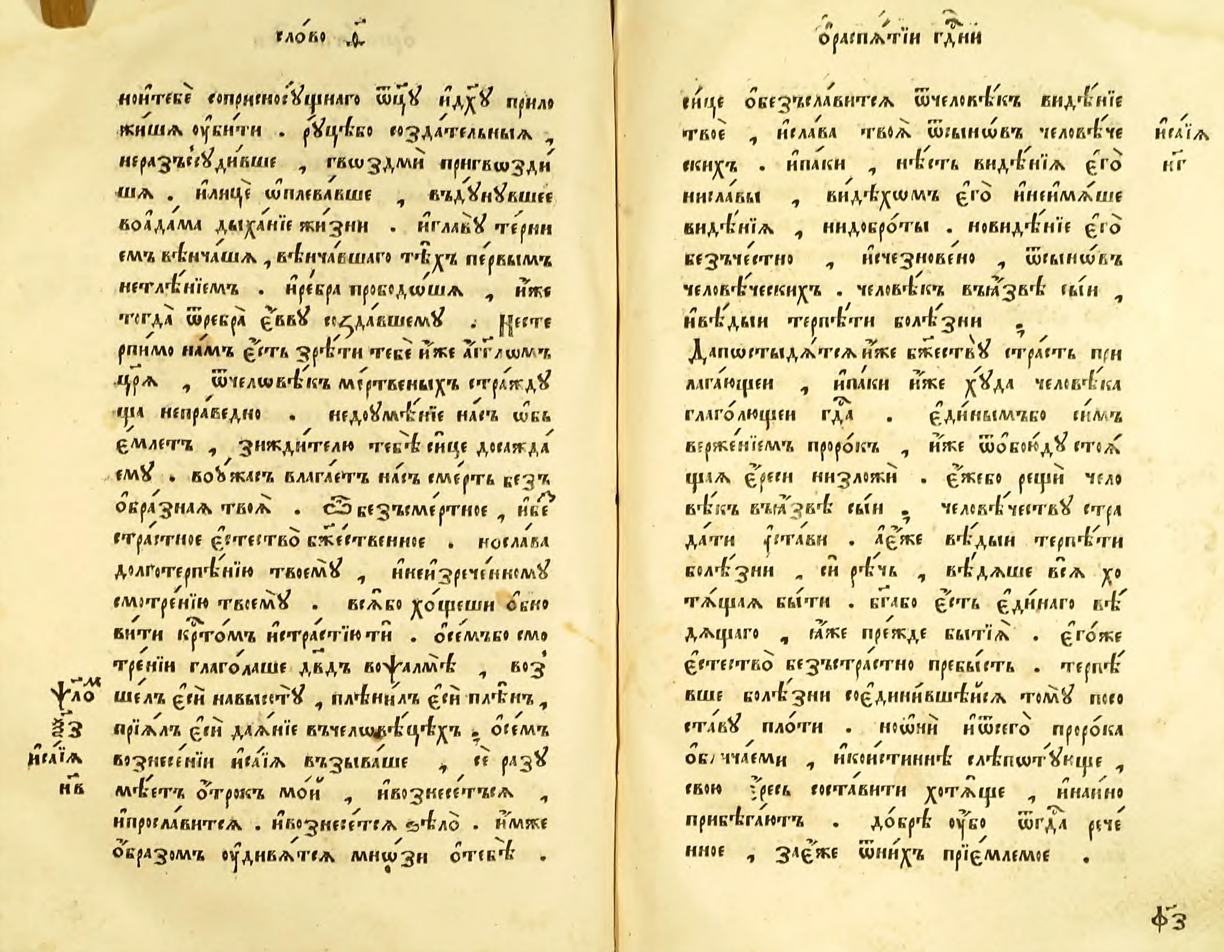 сло́во ѳ҃
но́и҆тебѐ соприсносꙋ́щнаго ѿц҃ꙋ̀ и҆дх҃ꙋ прило
жи́шѧ ᲂу҆би́ти . рꙋ́цѣбо созда́тельныѧ ,
неразъсꙋди́вше , гвѡздмѝ пригвѡзди́
шѧ . и҆лицѐ ѡ҆плева́вше , въдꙋнꙋ́вшее
воа҆да́ма дыха́нїе жи́зни . и҆главꙋ̀ те́рни
емъ вѣнча́шѧ , вѣнча́вшаго тѣ́хъ пе́рвымъ
нетлѣ́нїемъ . и҆ре́бра прободо́шѧ , и҆́же
тогда̀ ѿребра̀ є҆́ввꙋ созда́вшемꙋ . Несте
рпи́мо на́мъ є҆́сть зрѣ́ти тебѐ и҆́же а҆́гг҃ломъ
цр҃ѧ̀ , ѿчелѡвѣ́къ ме́ртвеныхъ стра́ждꙋ
ща непра́ведно . недоꙋмѣ́нїе на́съ ѡ҆бъ
е́млетъ , зижди́телю тебѣ̀ си́це досажда́
емꙋ . воᲂу҆́жасъ влага́етъ на́съ сме́рть безъ
ѻ҆бра́знаѧ твоѧ̀ . Ѽ безъсме́ртное , и҆бе
стра́стное є҆стество̀ бж҃е́ственное . носла́ва
долготерпѣ́нїю твоемꙋ̀ , и҆неи҆зрече́нномꙋ
смотре́нїю твоемꙋ̀ . всѧ̑бо хо́щеши ѻ҆бно
ви́ти крⷭ҇томъ и҆стра́стїюти . ѻ҆се́мъбо смо
тре́нїи глаго́лаше дв҃дъ воѱалмѣ̀ , воз
ше́лъ є҆сѝ навысотꙋ̀ , плѣни́лъ є҆сѝ плѣ́нъ ,
прїѧ́лъ є҆сѝ даѧ́нїе въчеловѣ́цѣхъ . ѻ҆се́мъ
вознесе́нїи и҆са́їѧ възыва́ше , сѐ разꙋ
мѣ́етъ ѻ҆́трокъ мо́й , и҆вознесе́тъсѧ ,
и҆просла́витсѧ . и҆вознесе́тсѧ ѕѣлѡ̀ . и҆́мже
ѻ҆́бразомъ ᲂу҆дивѧ́тсѧ мно́зи ѻ҆тебѣ̀ .
ѱалоⷨ
з҃з
и҆са́їѧ
н҃в
ѻ҆распѧ́тїи гдⷭ҇ни
си́це ѻ҆безъсла́витсѧ ѿчеловѣ́къ видѣ́нїе
твоѐ , и҆сла́ва твоѧ̀ ѿсынѡ́въ человѣ́че
скихъ . и҆па́ки , нѣ́сть видѣ́нїѧ є҆гѡ̀
нисла́вы , ви́дѣхомъ є҆го̀ и҆неи҆мѧ́ше
видѣ́нїѧ , нидобро́ты . новидѣ́нїе є҆го̀
безъче́стно , и҆счезнове́но , ѿсынѡ́въ
человѣ́ческихъ . человѣ́къ въꙗ҆́звѣ сы́и ,
и҆вѣ́дыи терпѣ́ти болѣ́зни ;
Дапостыдѧ́тсѧ и҆́же бж҃ествꙋ̀ стра́сть при
лага́ющеи , и҆па́ки и҆́же хꙋ́да человѣ́ка
глаго́лющеи гдⷭ҇а . є҆ди́нымъбо си́мъ
верже́нїемъ проро́къ , и҆́же ѿѻ҆бою́дꙋ стоѧ́
щаѧ є҆́реси низложѝ . є҆́жебо рещѝ чело
вѣ́къ въꙗ҆́звѣ сы́и , человѣ́чествꙋ стра
да́ти ѻ҆ста́ви . а҆є҆́же вѣ́дыи терпѣ́ти
болѣ́зни , сѝ рѣ́чь , вѣ́дѧше всѧ̀ хо
тѧ́щаѧ бы́ти . бг҃а́бо є҆́сть є҆ди́наго вѣ́
дѧщаго , ꙗ҆́же пре́жде бытїѧ̀ . є҆гѡ́же
є҆стество̀ безъстра́стно пребы́сть . терпѣ́
вше болѣ́зни соє҆дини́вшейсѧ томꙋ̀ посо
ста́вꙋ пло́ти . ноѻ҆нѝ и҆ѿсегѡ̀ проро́ка
ѻ҆блича́еми , и҆кои҆́стиннѣ слѣпотꙋ́юще ,
свою̀ є҆́ресь соста́вити хотѧ́ще , и҆наи҆́но
прибѣга́ютъ . до́брѣ ᲂу҆́бо ѿгдⷭ҇а рече́
нное , зає҆́же ѿни́хъ прїе́млемое .
и҆са́їѧ
н҃г
ф҃з